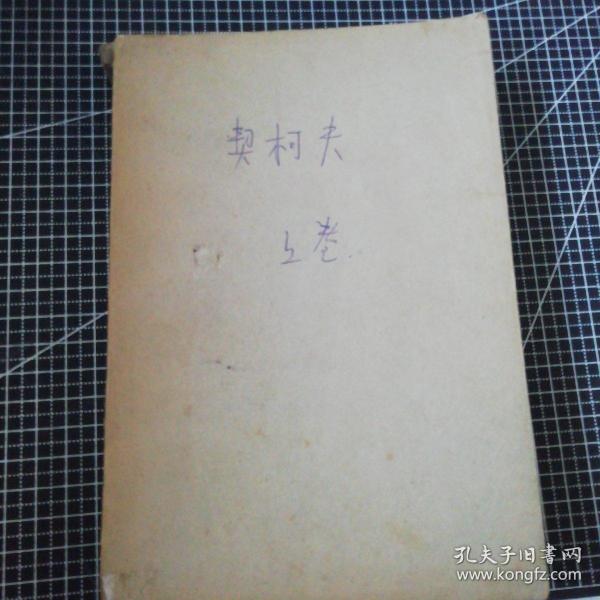 契柯夫
上卷
孔夫子旧书网
www.kongfz.com